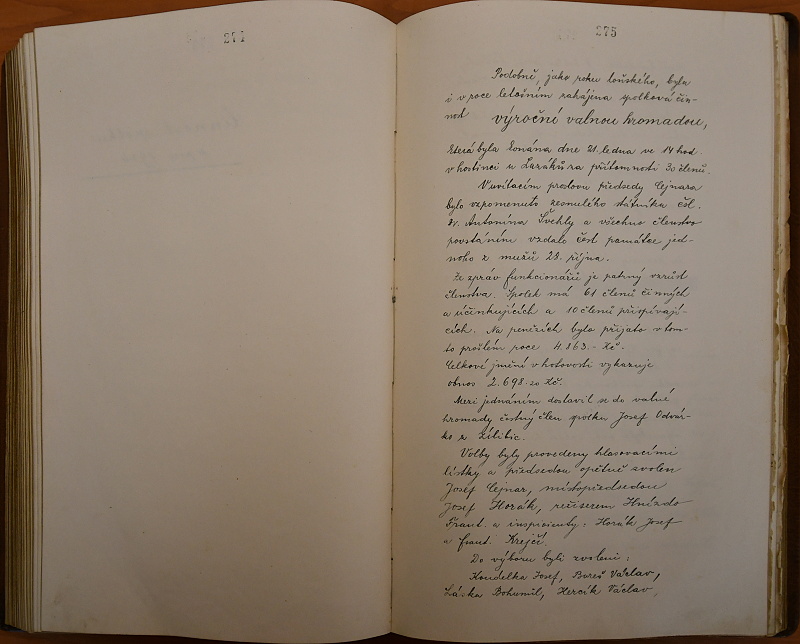 274
275
Podobně, jako roku loňského, byla
i v roce letošním zahájena spolková čin-
nost výroční valnou hromadou,
která byla konána dne 21. ledna ve 14 hod.
v hostinci u Lazáků za přítomnosti 30 členů.
V uvítacím proslovu předsedy Cejnara
bylo vzpomenuto zesnulého státníka čsl.
Antonína Švehly a všechno členstvo
povstáním vzdalo čest památce jed-
noho z mužů 28. října.
Ze zpráv funkcionářů je patrný vzrůst
členstva. Spolek má 61 členů činných
a účinkujících a 10 členů přispívají-
cích. Na penězích bylo přijato v tom-
to prošlém roce 4.863.- Kč.
Celkové jmění v hotovosti vykazuje
obnos 2.698.20 Kč.
Mezi jednáním dostavil se do valné
hromady čestný člen spolku Josef Odvár-
ko z Lilibic.
Volby byly provedeny hlasovacími
lístky a předsedou opětně zvolen
Josef Cejnar, místopředsedou
Josef Horák, režiserem Hnízdo
Frant. a inspicienty: Horák Josef
a Frant. Krejčí.
Do výboru byli zvoleni:
Koudelka Josef, Bureš Václav,
Láska Bohumil, Hercík Václav,